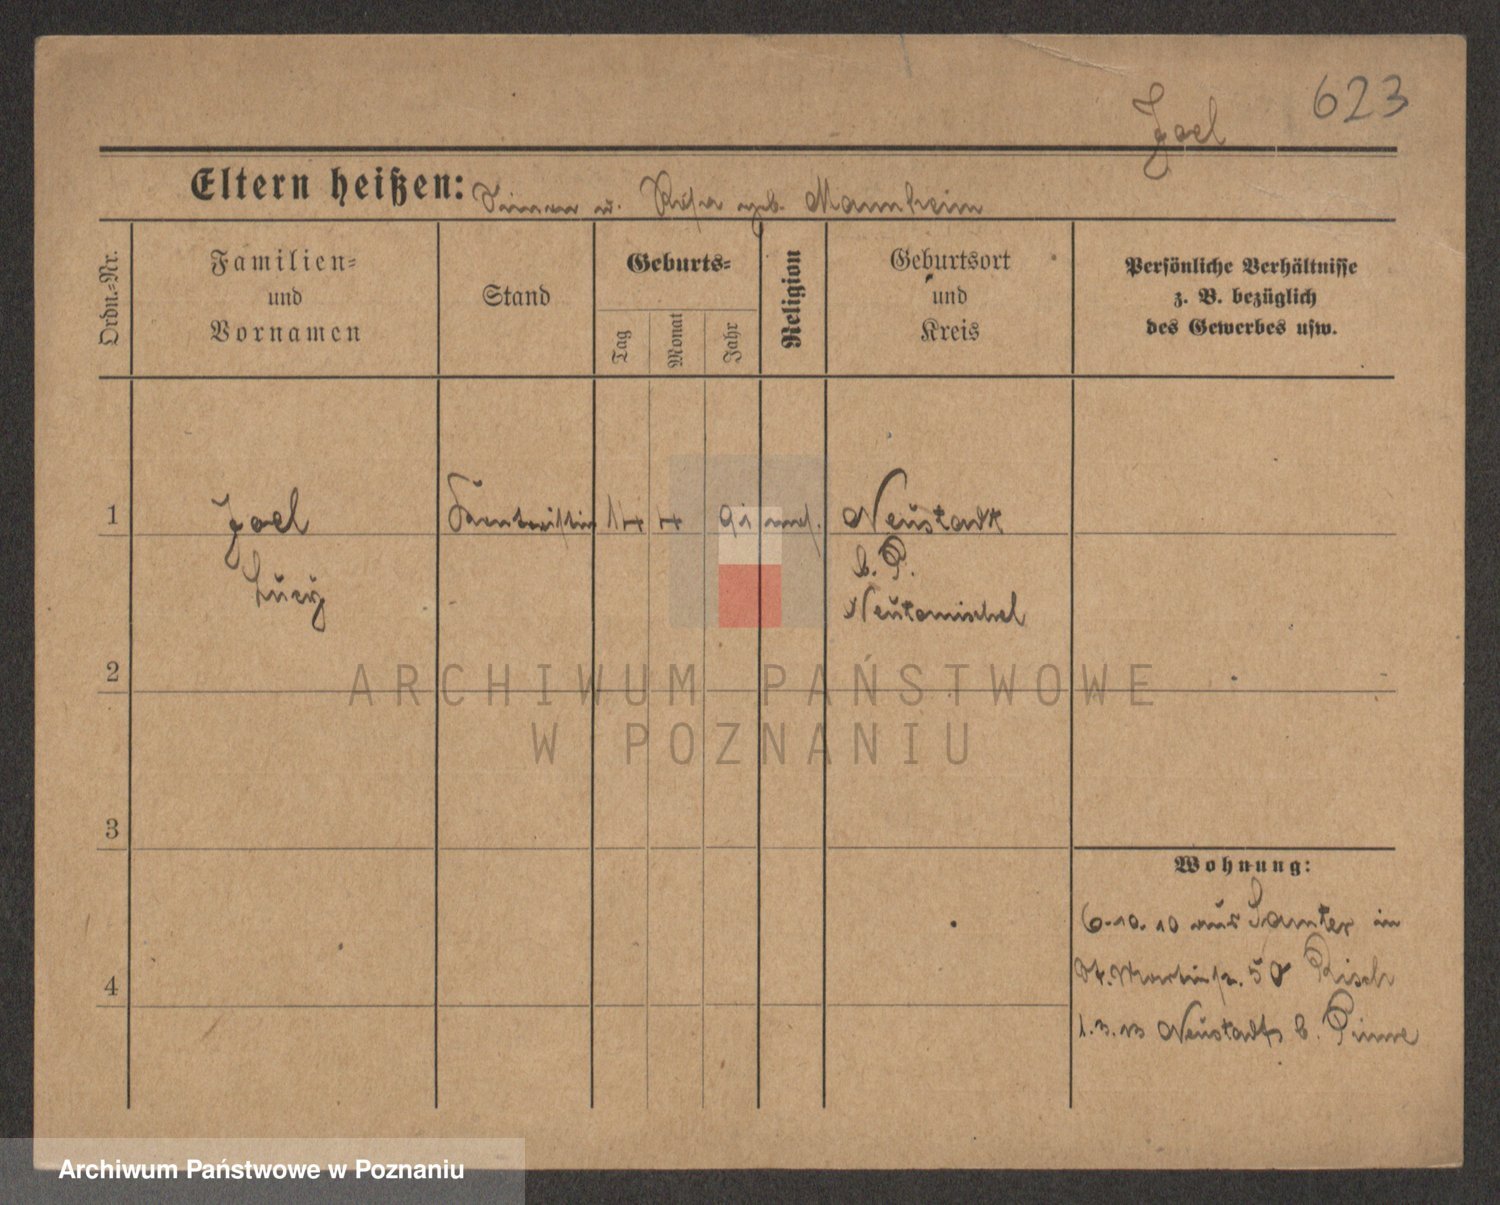 623
Joel
Eltern heißen: Simon u. Rosa geb. Mannheim
Ordn.-Nr.
Familien-
und
Vornamen
Stand
Geburts-
Tag
Monat
Jahr
Religion
Geburtsort
und
Kreis
Persönliche Verhältnisse
z. B. bezüglich
des Gewerbes usw.
1
Joel
Kontoristin
4
91
mos.
Neustadt
b. P.
Lucy
Neutomischel
2
3
4
Wohnung:
6.10.10 aus Samter in
St. Martinstr. 50 Risch
1.3.13 Neustadt b. Pinne
ARCHIWUM PAŃSTWOWE
W POZNANIU
Archiwum Państwowe w Poznaniu